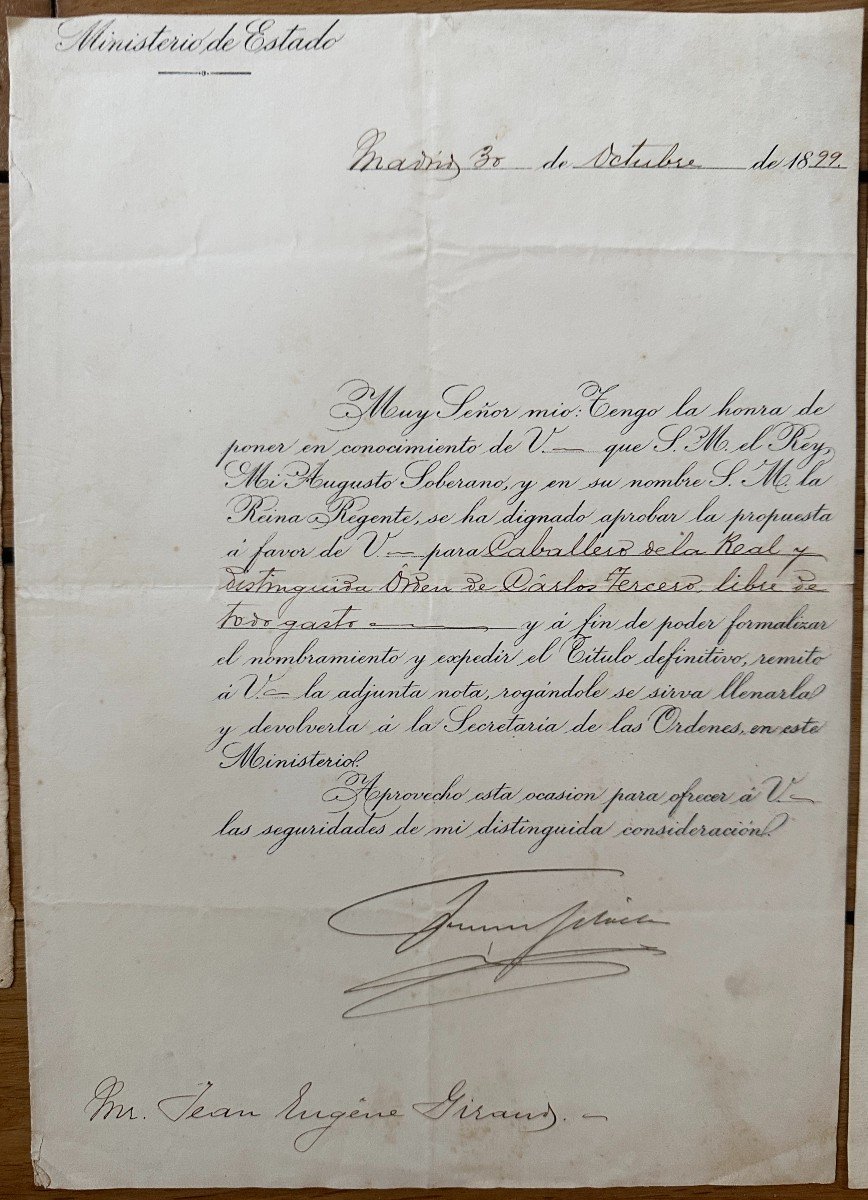 Ministerio de Estado
Madrid 30 de Octubre de 1899.
Muy Señor mio: Tengo la honra de
poner en conocimiento de V. — que S. M. el Rey,
Mi Augusto Soberano, y en su nombre S. M. la
Reina Regente, se ha dignado aprobar la propuesta
á favor de V. — para Caballero de la Real y
distinguida Órden de Cárlos Tercero, libre de
todo gasto — y á fin de poder formalizar
el nombramiento y expedir el Titulo definitivo, remito
á V. — la adjunta nota, rogándole se sirva llenarla
y devolverla á la Secretaría de las Ordenes, en este
Ministerio.
Aprovecho esta ocasion para ofrecer á V. —
las seguridades de mi distinguida consideración.
Mr. Jean Eugène Giraud. —